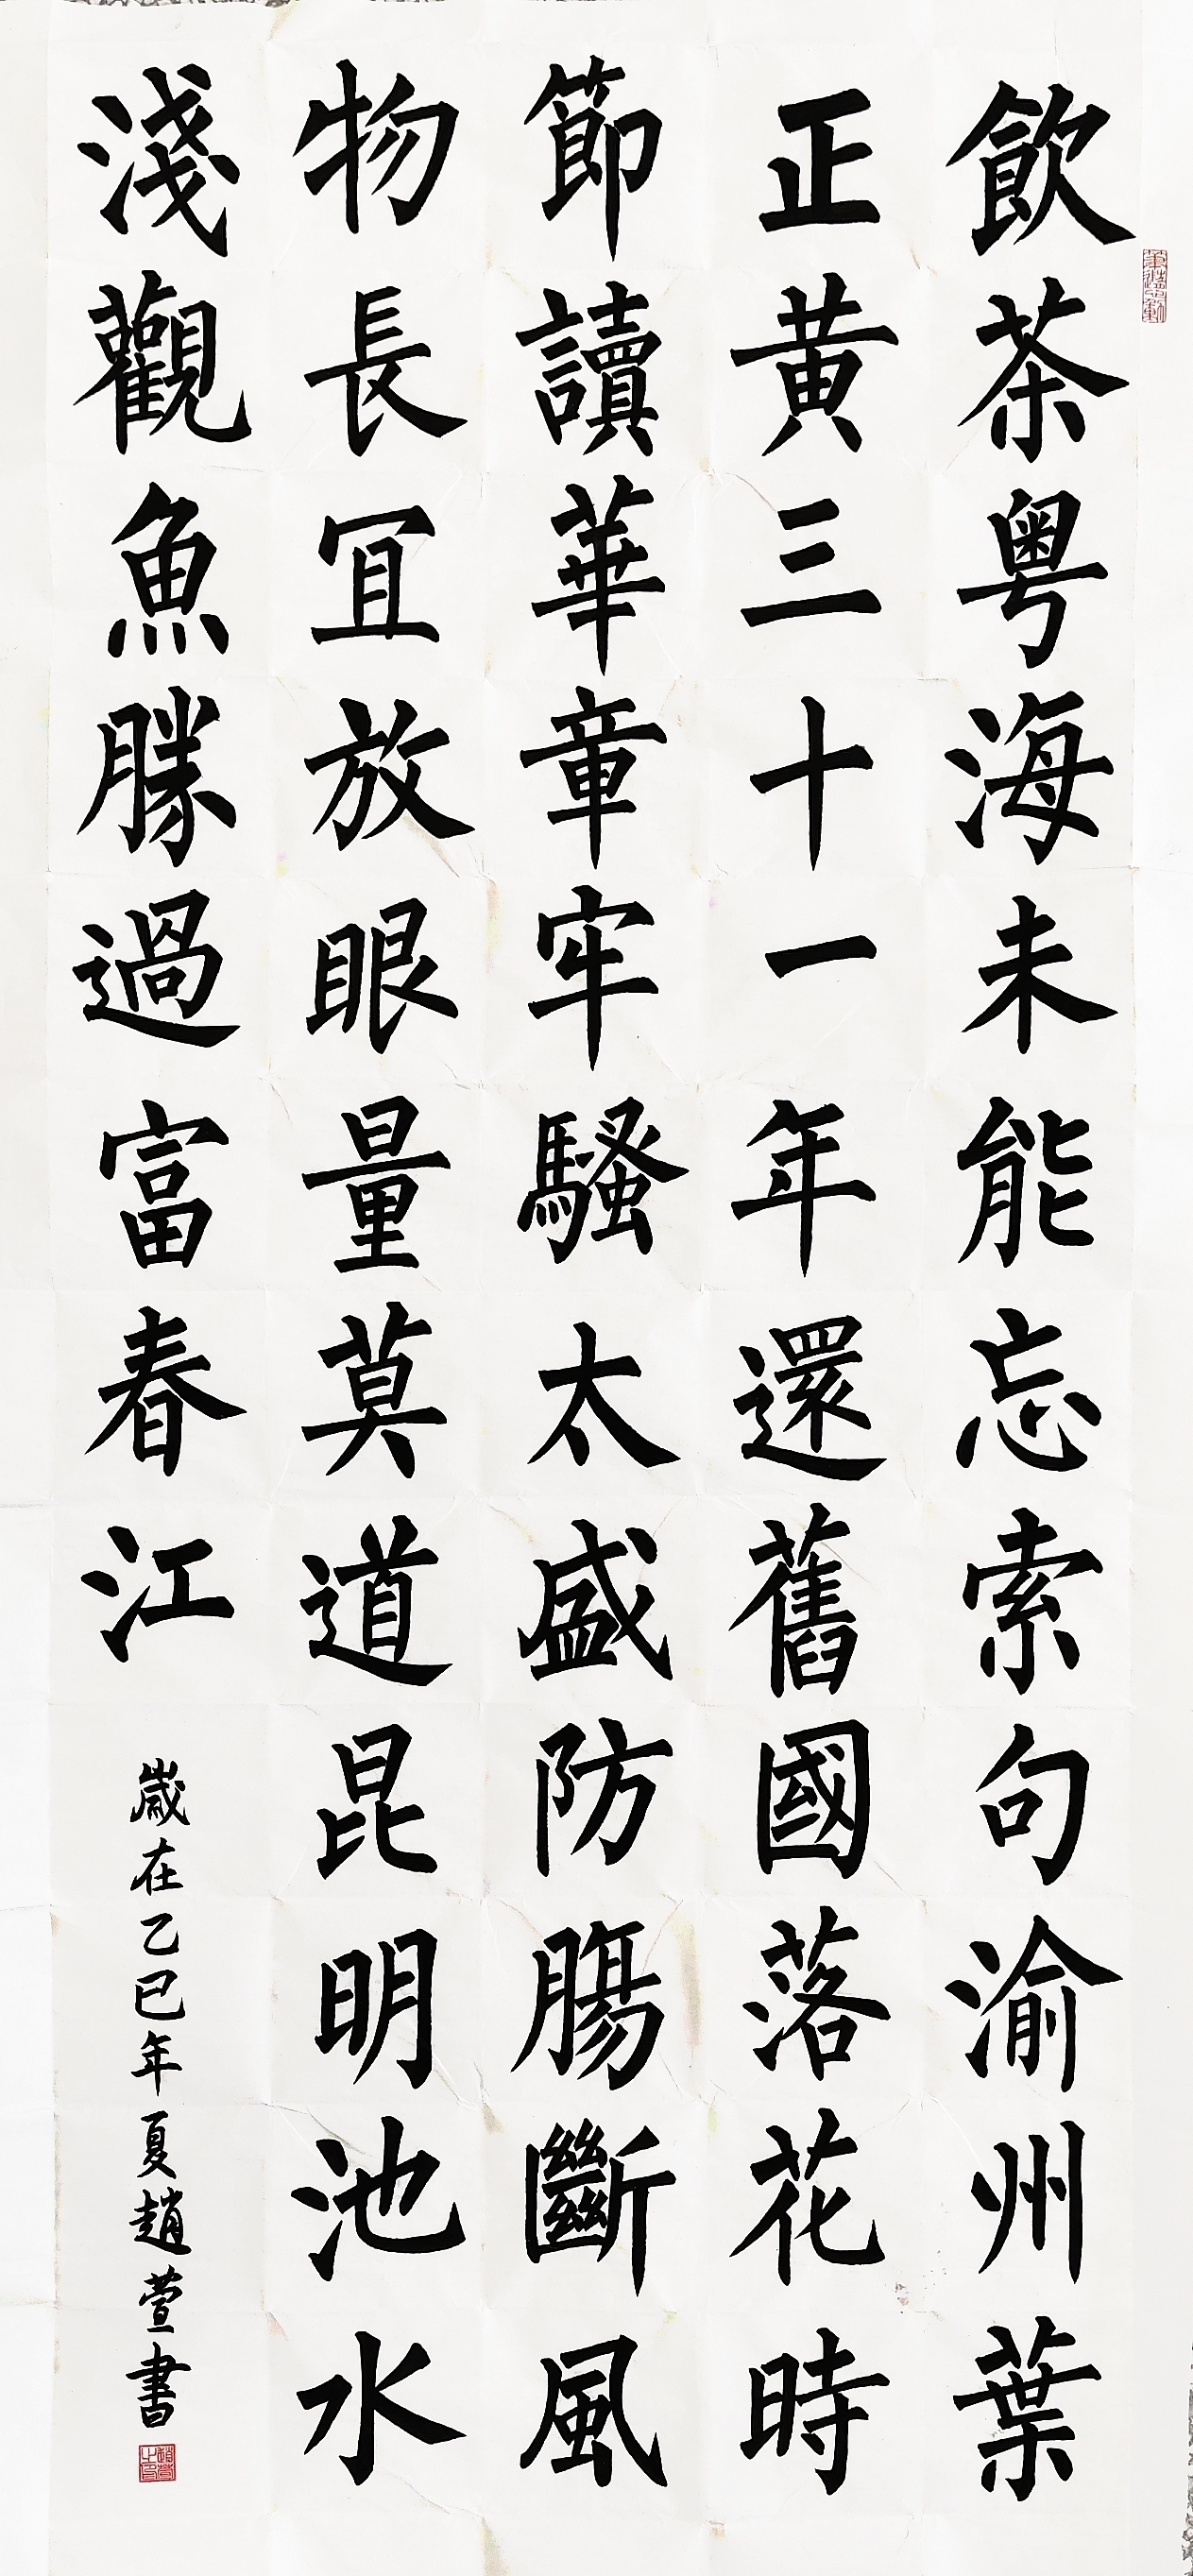 飲茶粤海未能忘索句渝州葉
正黄三十一年還舊國落花時
節讀華章牢騷太盛防腸斷風
物長宜放眼量莫道昆明池水
淺觀魚勝過富春江
歲在乙巳年夏趙萱書